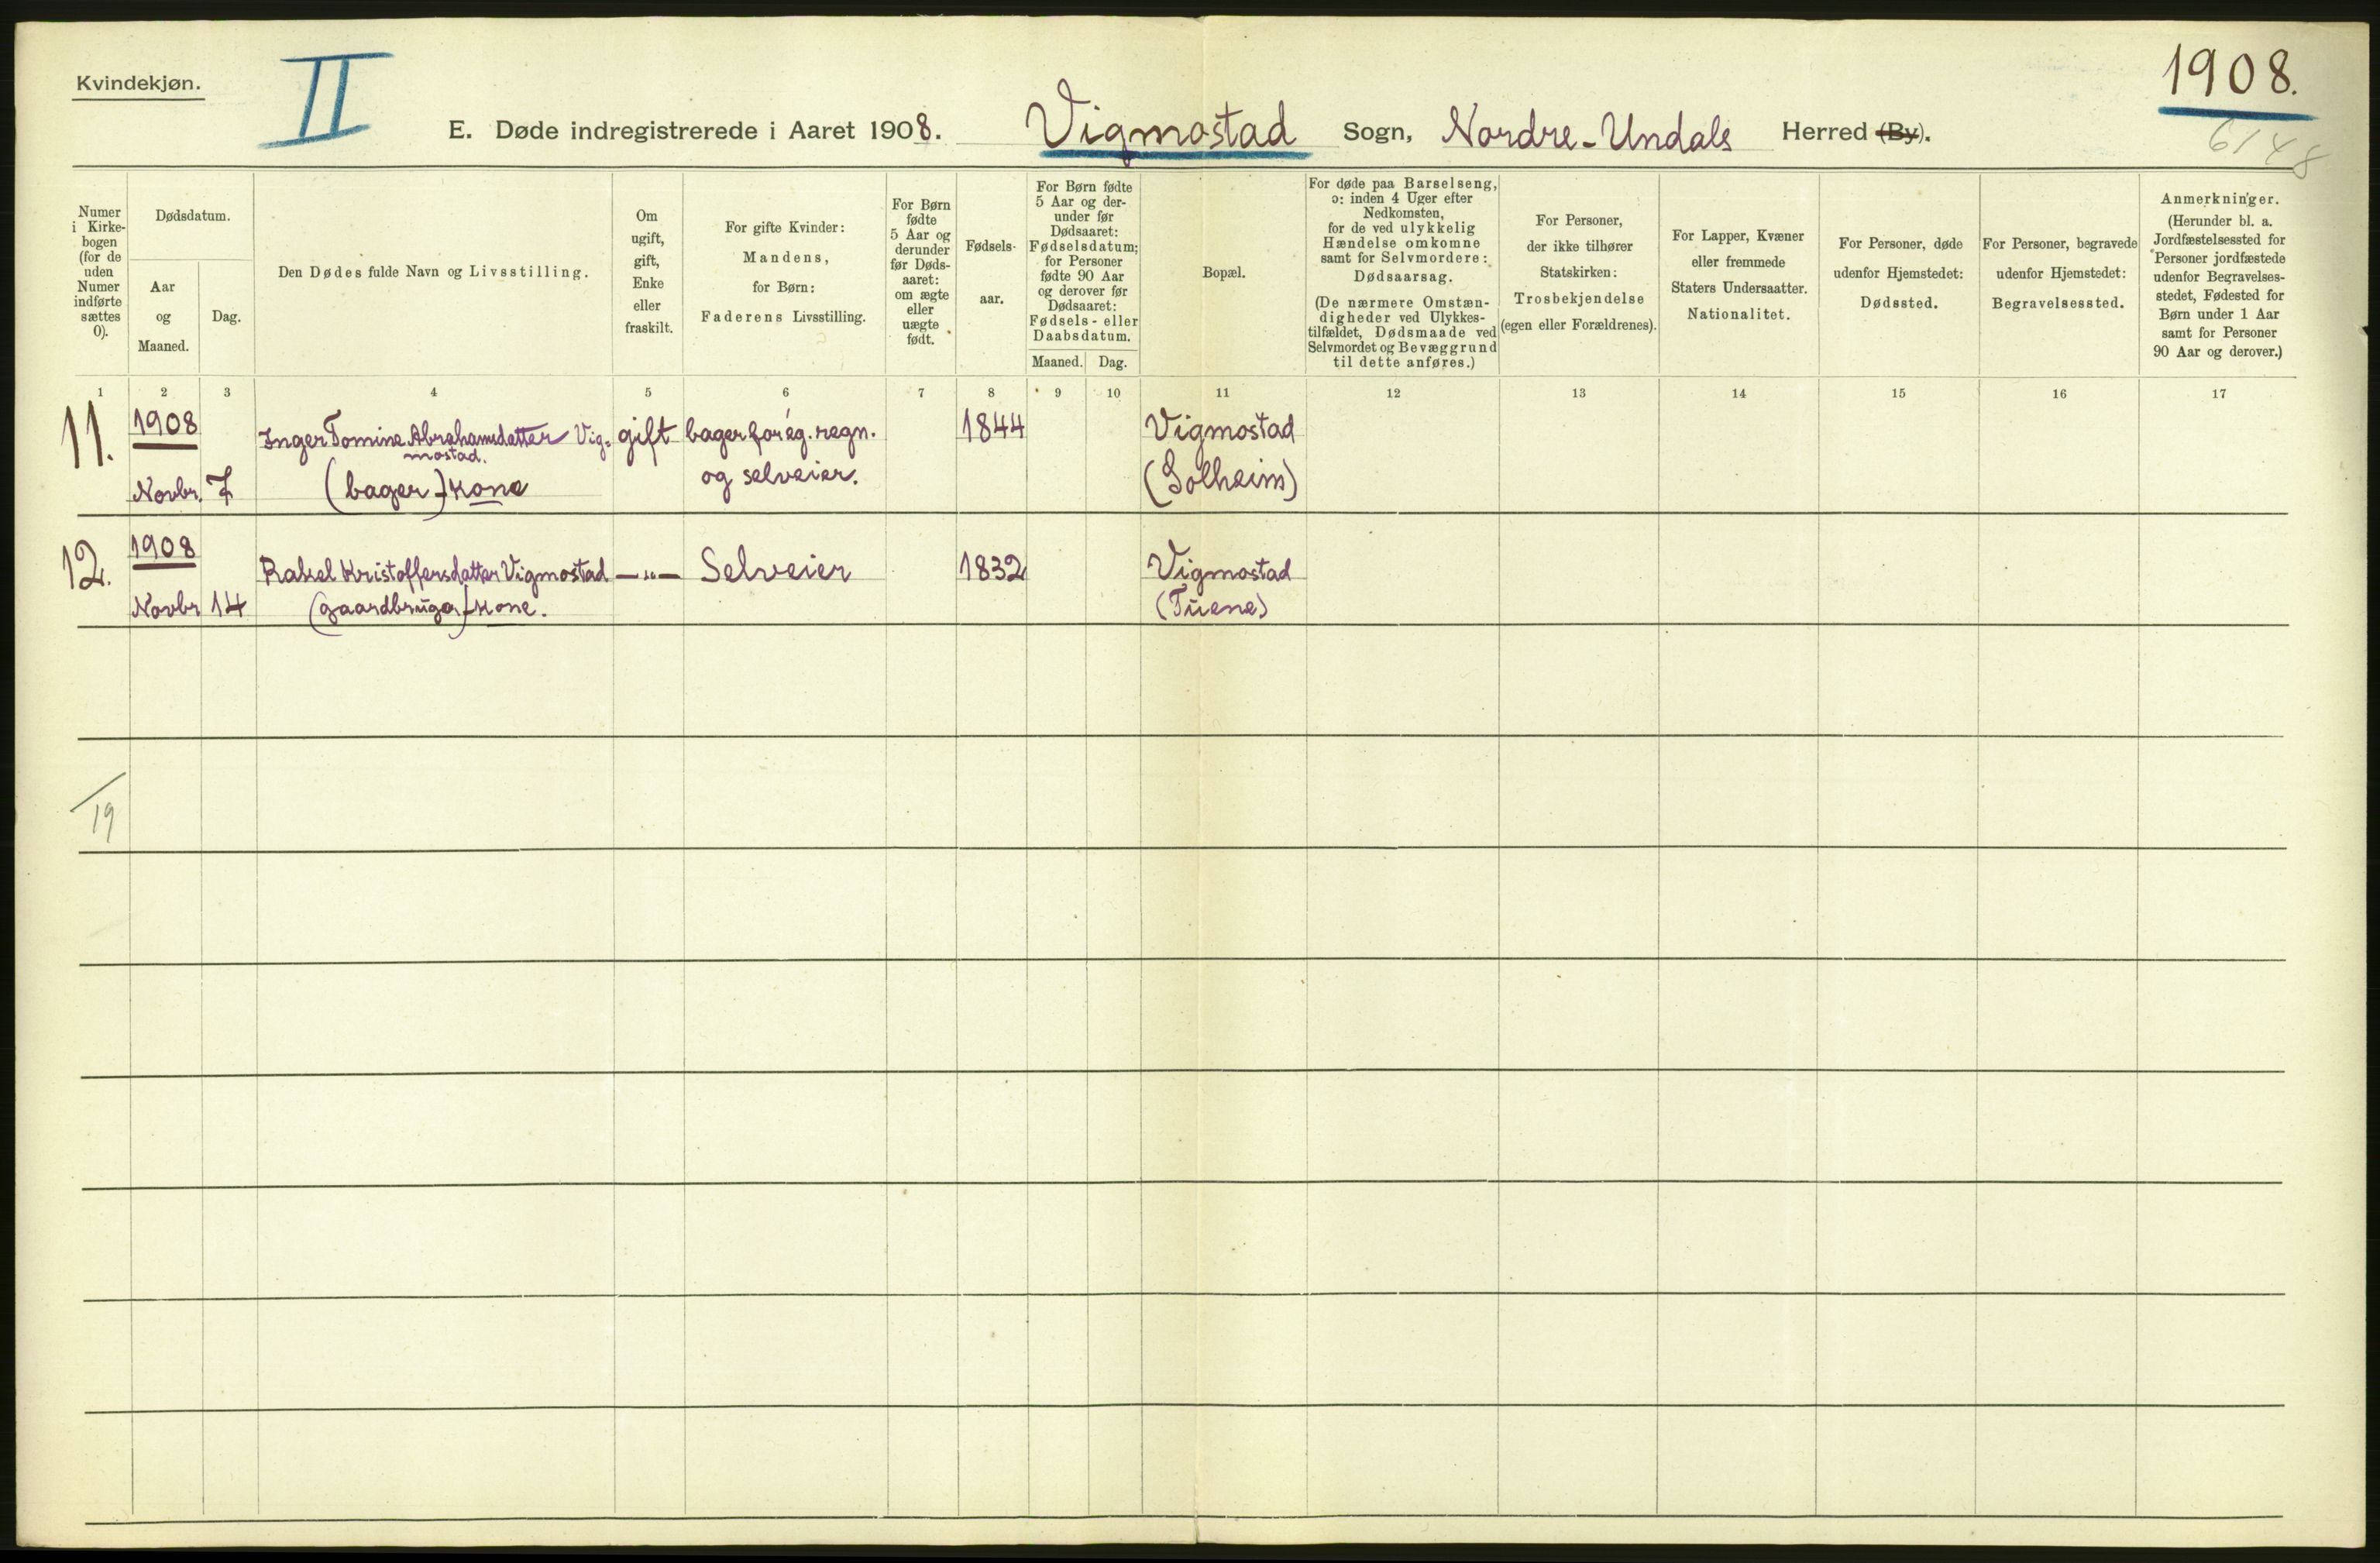 Kvindekjøn.
II
1908.
E. Døde indregistrerede i Aaret 1908. Vigmostad Sogn, Nordre-Undals Herred (By).
Numer i Kirkebogen (for de uden Numer indførte sættes 0).
Dødsdatum.
Aar og Maaned.
Dag.
Den Dødes fulde Navn og Livsstilling.
Om ugift, gift, Enke eller fraskilt.
For gifte Kvinder: Mandens, for Børn: Faderens Livsstilling.
For Børn fødte 5 Aar og derunder før Dødsaaret: om ægte eller uægte født.
Fødselsaar.
For Børn fødte 5 Aar og derunder før Dødsaaret: Fødselsdatum; for Personer fødte 90 Aar og derover før Dødsaaret: Fødsels- eller Daabsdatum.
Maaned. Dag.
Bopæl.
For døde paa Barselseng, ɔ: inden 4 Uger efter Nedkomsten, for de ved ulykkelig Hændelse omkomne samt for Selvmordere: Dødsaarsag.
(De nærmere Omstændigheder ved Ulykkestilfældet, Dødsmaade ved Selvmordet og Bevæggrund til dette anføres.)
For Personer, der ikke tilhører Statskirken: Trosbekjendelse (egen eller Forældrenes).
For Lapper, Kvæner eller fremmede Staters Undersaatter. Nationalitet.
For Personer, døde udenfor Hjemstedet: Dødssted.
For Personer, begravede udenfor Hjemstedet: Begravelsessted.
Anmerkninger.
(Herunder bl. a. Jordfæstelsessted for Personer jordfæstede udenfor Begravelsesstedet, Fødested for Børn under 1 Aar samt for Personer 90 Aar og derover.)
1 2 3 4 5 6 7 8 9 10 11 12 13 14 15 16 17
11. 1908 Inger Tomine Abrahamsdatter Vig- gift bager for eg. regn. 1844 Vigmostad
mostad.
Novbr. 7 (bager) kone og selveier. (Solheim)
12. 1908 Rakel Kristoffersdatter Vigmostad —"— Selveier 1832 Vigmostad
Novbr 14 (gaardbruger) kone. (Tuene)
19